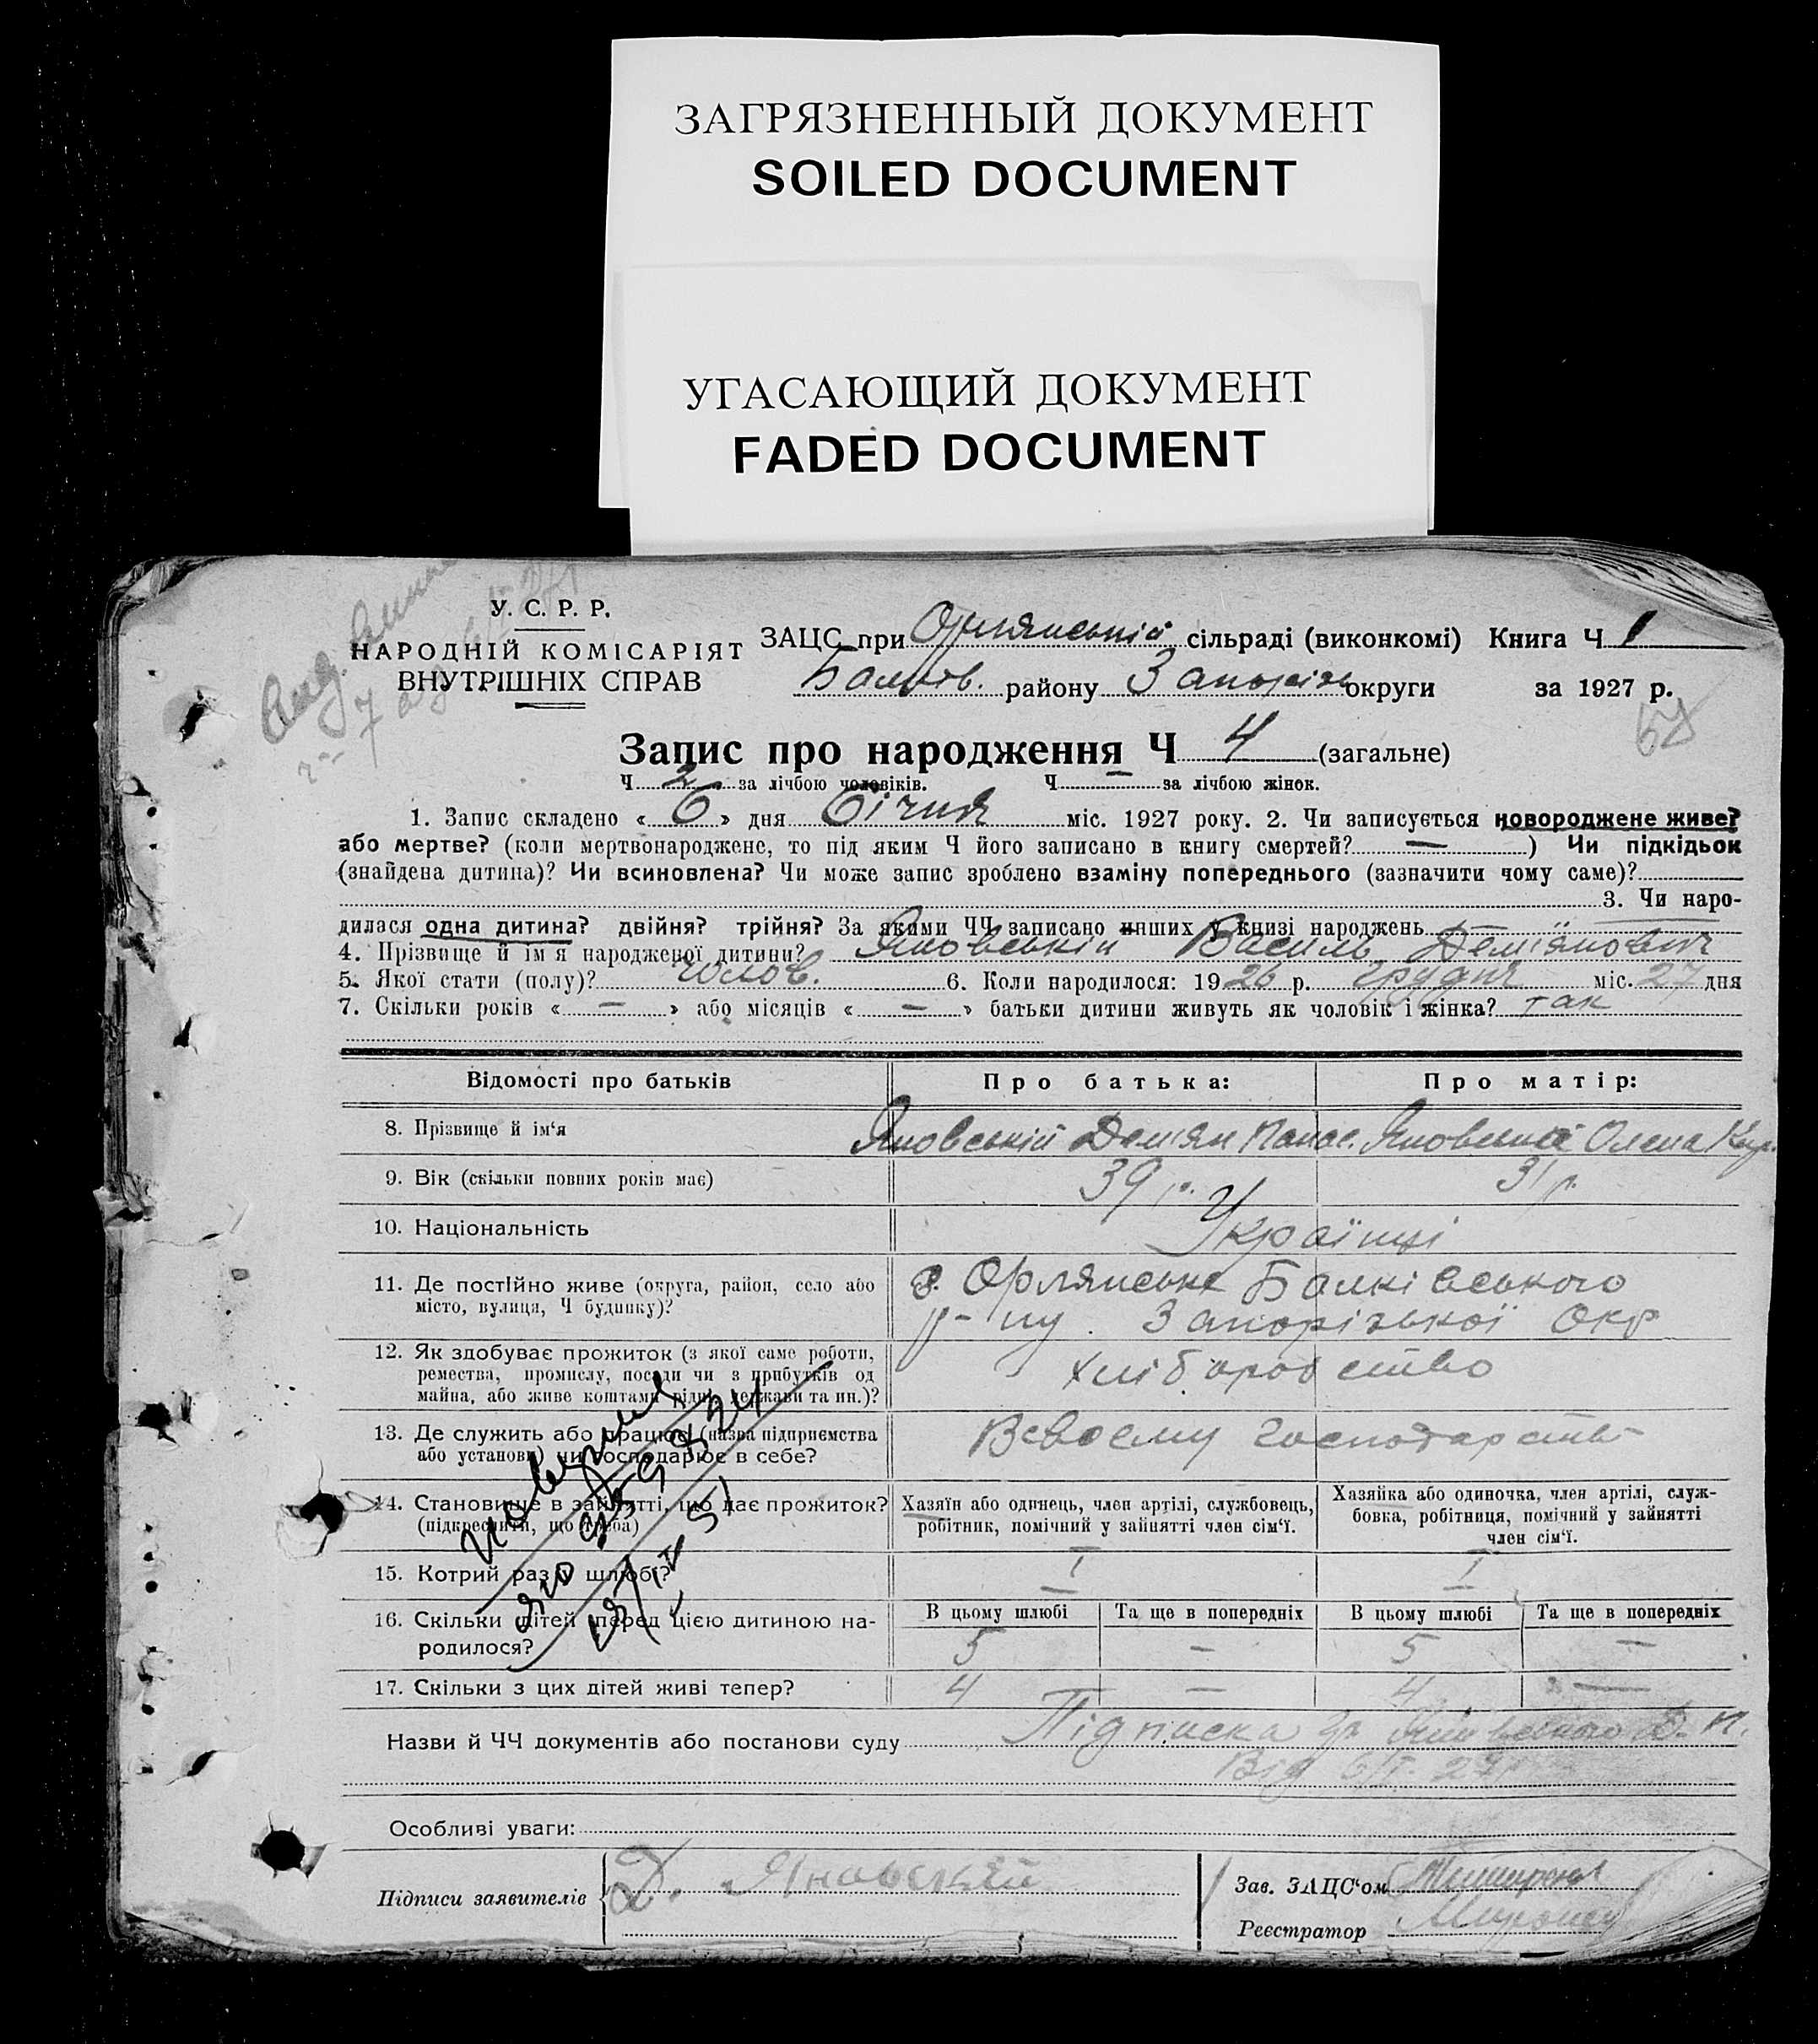 ЗАГРЯЗНЕННЫЙ ДОКУМЕНТ
SOILED DOCUMENT
УГАСАЮЩИЙ ДОКУМЕНТ
FADED DOCUMENT
У. С. Р. Р.
НАРОДНІЙ КОМІСАРІЯТ
ВНУТРІШНІХ СПРАВ
ЗАЦС при Орлянській сільраді (виконкомі) Книга Ч 1
району Запоріж округи за 1927 р.
Запис про народження Ч 4 (загальне)
Ч 2 за лічбою чоловіків. Ч — за лічбою жінок.
1. Запис складено « 6 » дня Січня міс. 1927 року. 2. Чи записується новороджене живе?
або мертве? (коли мертвонароджене, то під яким Ч його записано в книгу смертей? — ) Чи підкідьок
(знайдена дитина)? Чи всиновлена? Чи може запис зроблено взаміну попереднього (зазначити чому саме)?
3. Чи наро-
дилася одна дитина? двійня? трійня? За якими ЧЧ записано инших у книзі народжень
4. Прізвище й ім'я народженої дитини? Яновській Василь Демʼянович
5. Якої стати (полу)? чолов. 6. Коли народилося: 1926 р. грудня міс. 27 дня
7. Скільки років « — » або місяців « — » батьки дитини живуть як чоловік і жінка? так
Відомості про батьків
Про батька:
Про матір:
8. Прізвище й ім'я
Яновській Демʼян Панас. Яновська Олена
9. Вік (скільки повних років має)
39 р. 31 р.
10. Національність
Українці
11. Де постійно живе (округа, район, село або
місто, вулиця, Ч будинку)?
с. Орлянське Балківського
р-ну Запорізької Окр
12. Як здобуває прожиток (з якої саме роботи,
ремества, промислу, посади чи з прибутків од
майна, або живе коштами рідні, держави та ин.)?
хліборобство
13. Де служить або працює (назва підприємства
або установи) чи господарює в себе?
В своему господарстві
14. Становище в занятті, що дає прожиток?
(підкреслити, що треба)
Хазяїн або одинець, член артілі, службовець,
робітник, помічний у зайнятті член сім'ї.
Хазяйка або одиночка, член артілі, служ-
бовка, робітниця, помічний у зайнятті
член сім'ї.
15. Котрий раз у шлюбі?
I I
16. Скільки дітей перед цією дитиною на-
родилося?
В цьому шлюбі Та ще в попередніх В цьому шлюбі Та ще в попередніх
5 — 5 —
17. Скільки з цих дітей живі тепер?
4 — 4 —
Назви й ЧЧ документів або постанови суду Підписка гр. Яновського Д. П.
Від 6/I-27
Особливі уваги:
Підписи заявителів
Д. Яновский
Зав. ЗАЦС'ом
Реєстратор